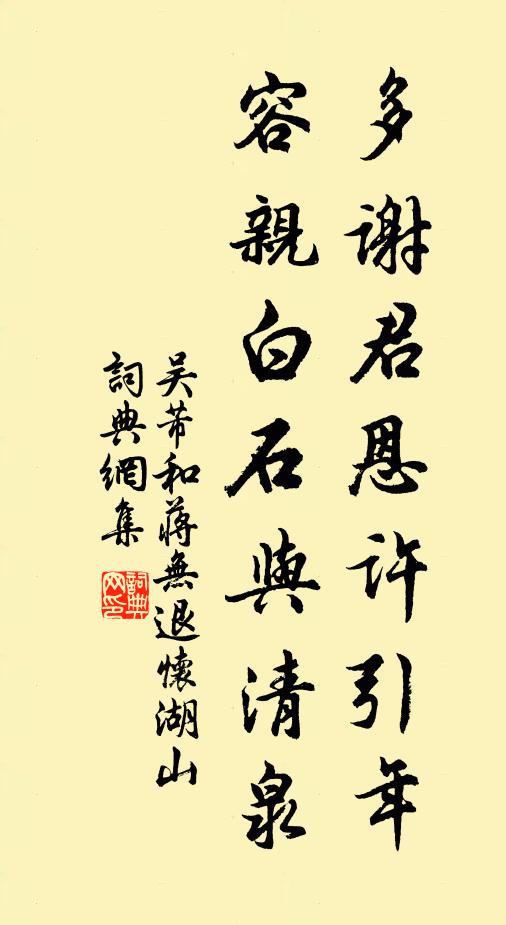 多謝君恩許引年
容親白石與清泉
吴芾和蔣無退懷湖山
詞典網集
詞典網印